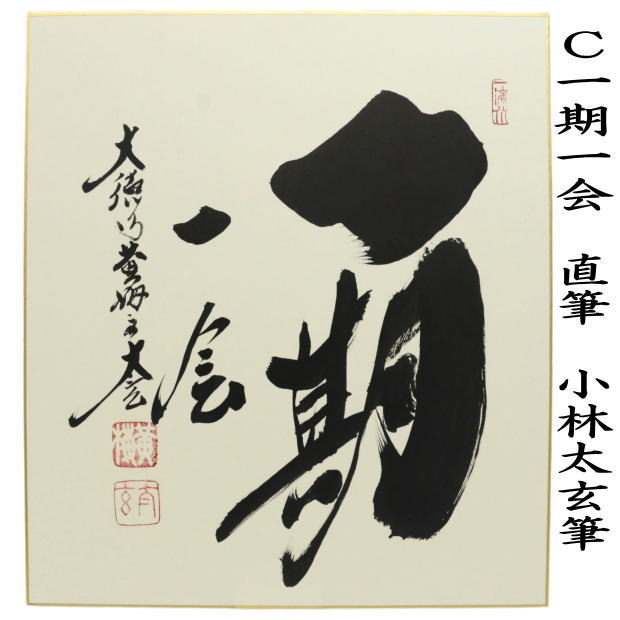 C一期一会 直筆 小林太玄筆
一期
一会
大徳寺黄梅主太玄
黄梅
太玄